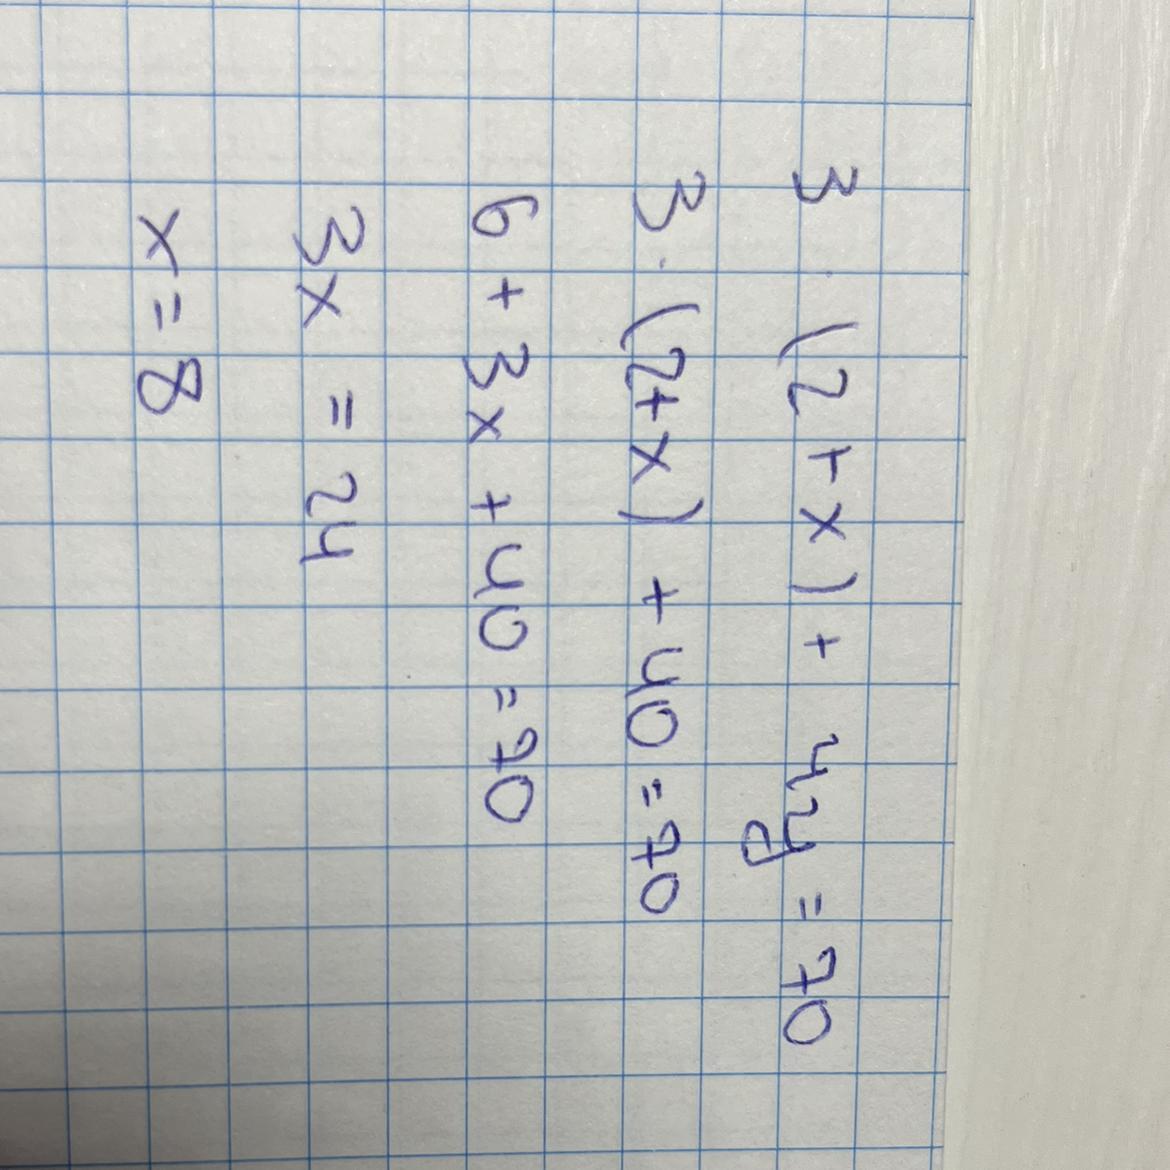 3 · (2 + x) + 4y = 70
3 · (2 + x) + 40 = 70
6 + 3x + 40 = 70
3x = 24
x = 8